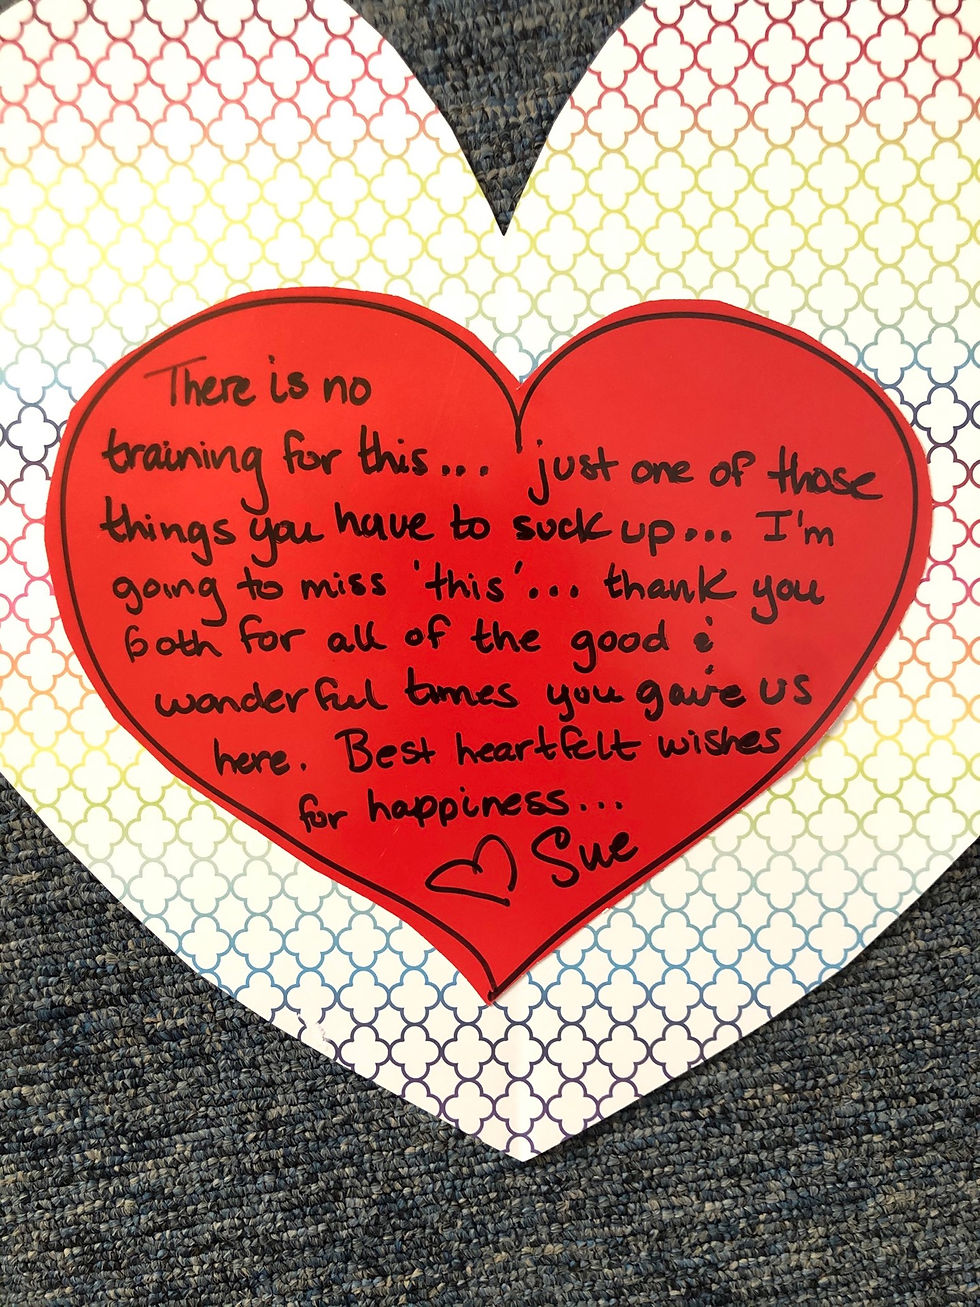 There is no
training for this... just one of those
things you have to suck up... I'm
going to miss 'this'... thank you
both for all of the good &
wonderful times you gave us
here. Best heartfelt wishes
for happiness...
♡ Sue